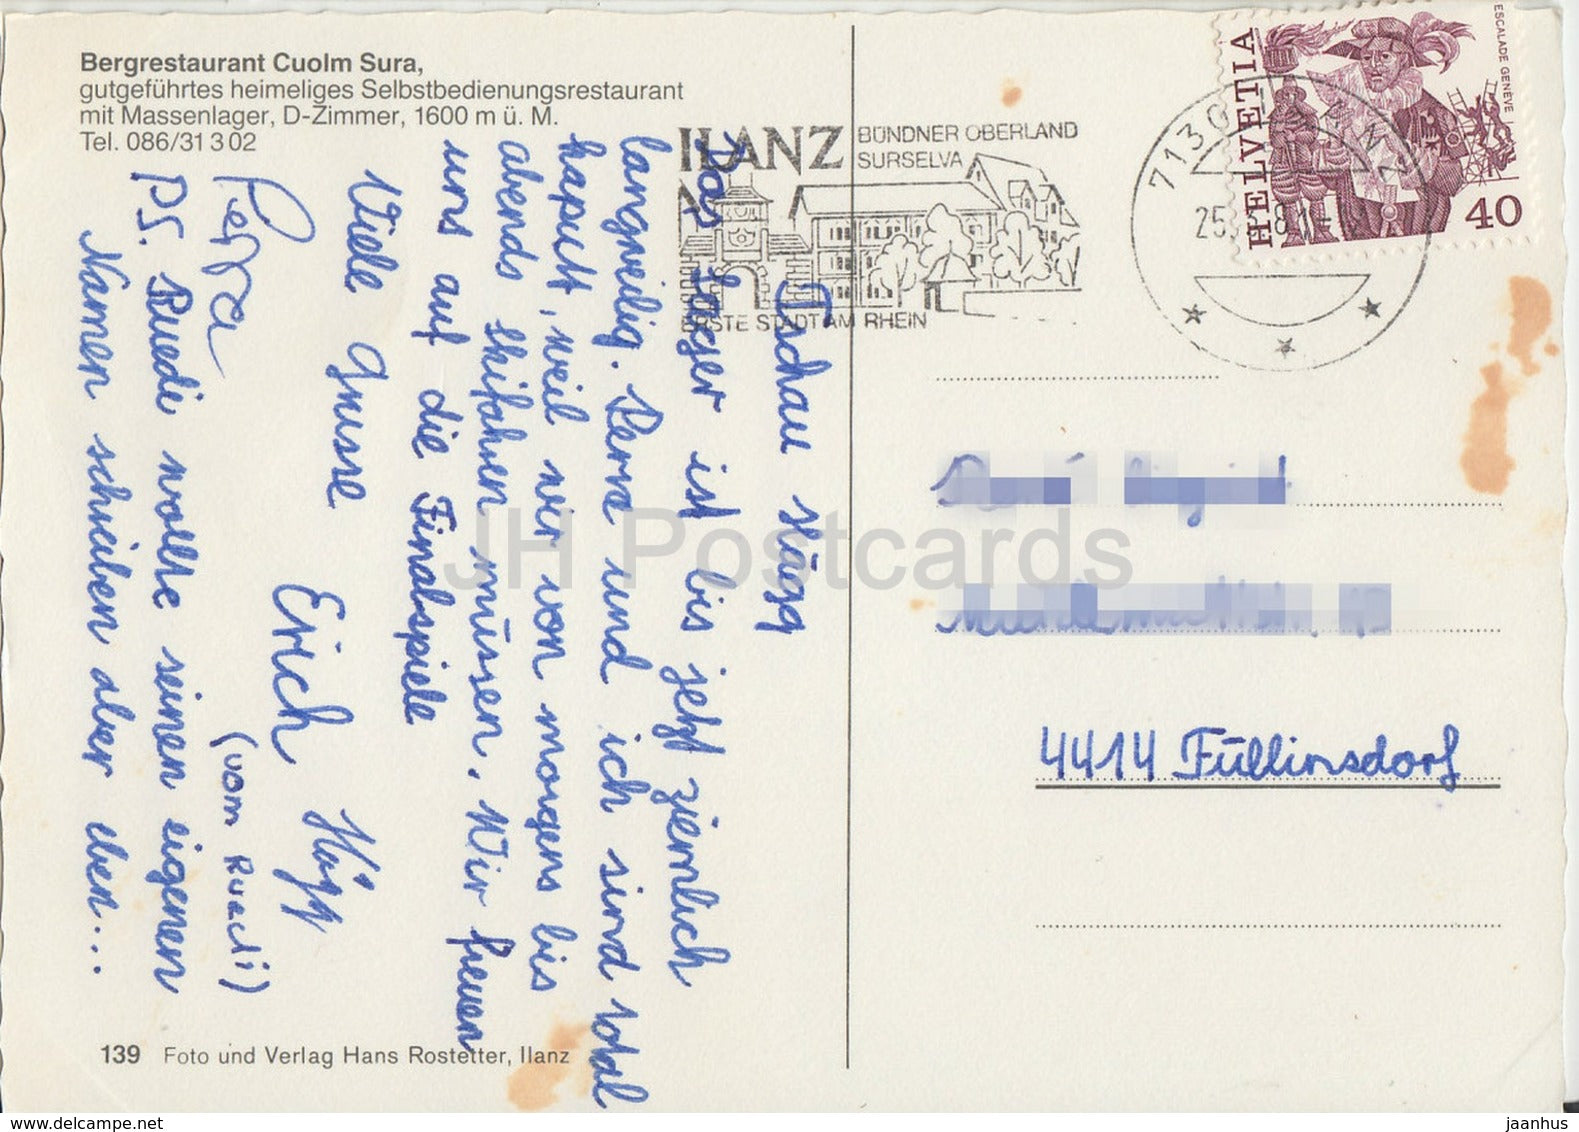 Bergrestaurant Cuolm Sura,
gutgeführtes heimeliges Selbstbedienungsrestaurant
mit Massenlager, D-Zimmer, 1600 m ü. M.
Tel. 086/31 3 02
Tschau
Das Lager ist bis jetzt ziemlich
langweilig. Perra und ich sind total
kaputt, weil wir von morgens bis
abends skifahren müssen. Wir freuen
uns auf die Finalspiele
Viele Grüsse
Erich
Perra
(vom Ruedi)
PS. Ruedi wollte seinen eigenen
Namen schreiben aber eben...
139 Foto und Verlag Hans Rostetter, Ilanz
ILANZ
BÜNDNER OBERLAND
SURSELVA
ERSTE STADT AM RHEIN
7130 ILANZ
HELVETIA
ESCALADE GENÈVE
40
4414 Füllinsdorf
JH Postcards
jaanhus
www.delcampe.net